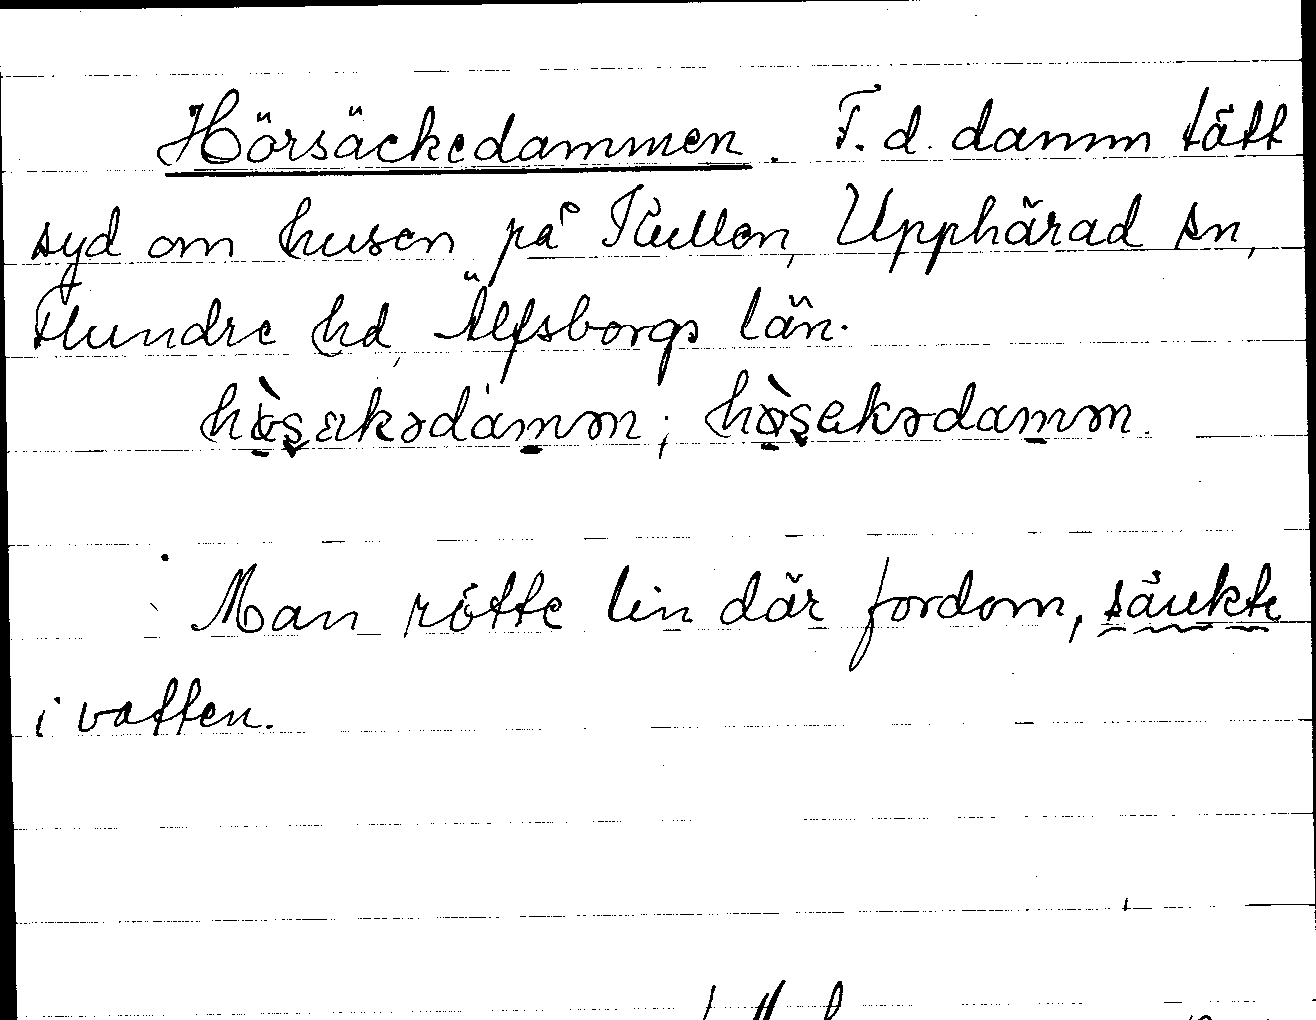 Hörsäckedammen. F. d. damm tätt
syd om husen på Kullen, Upphärad sn,
Flundre hd, Älfsborgs län.
Man rötte lin där fordom, sänkte
i vatten.